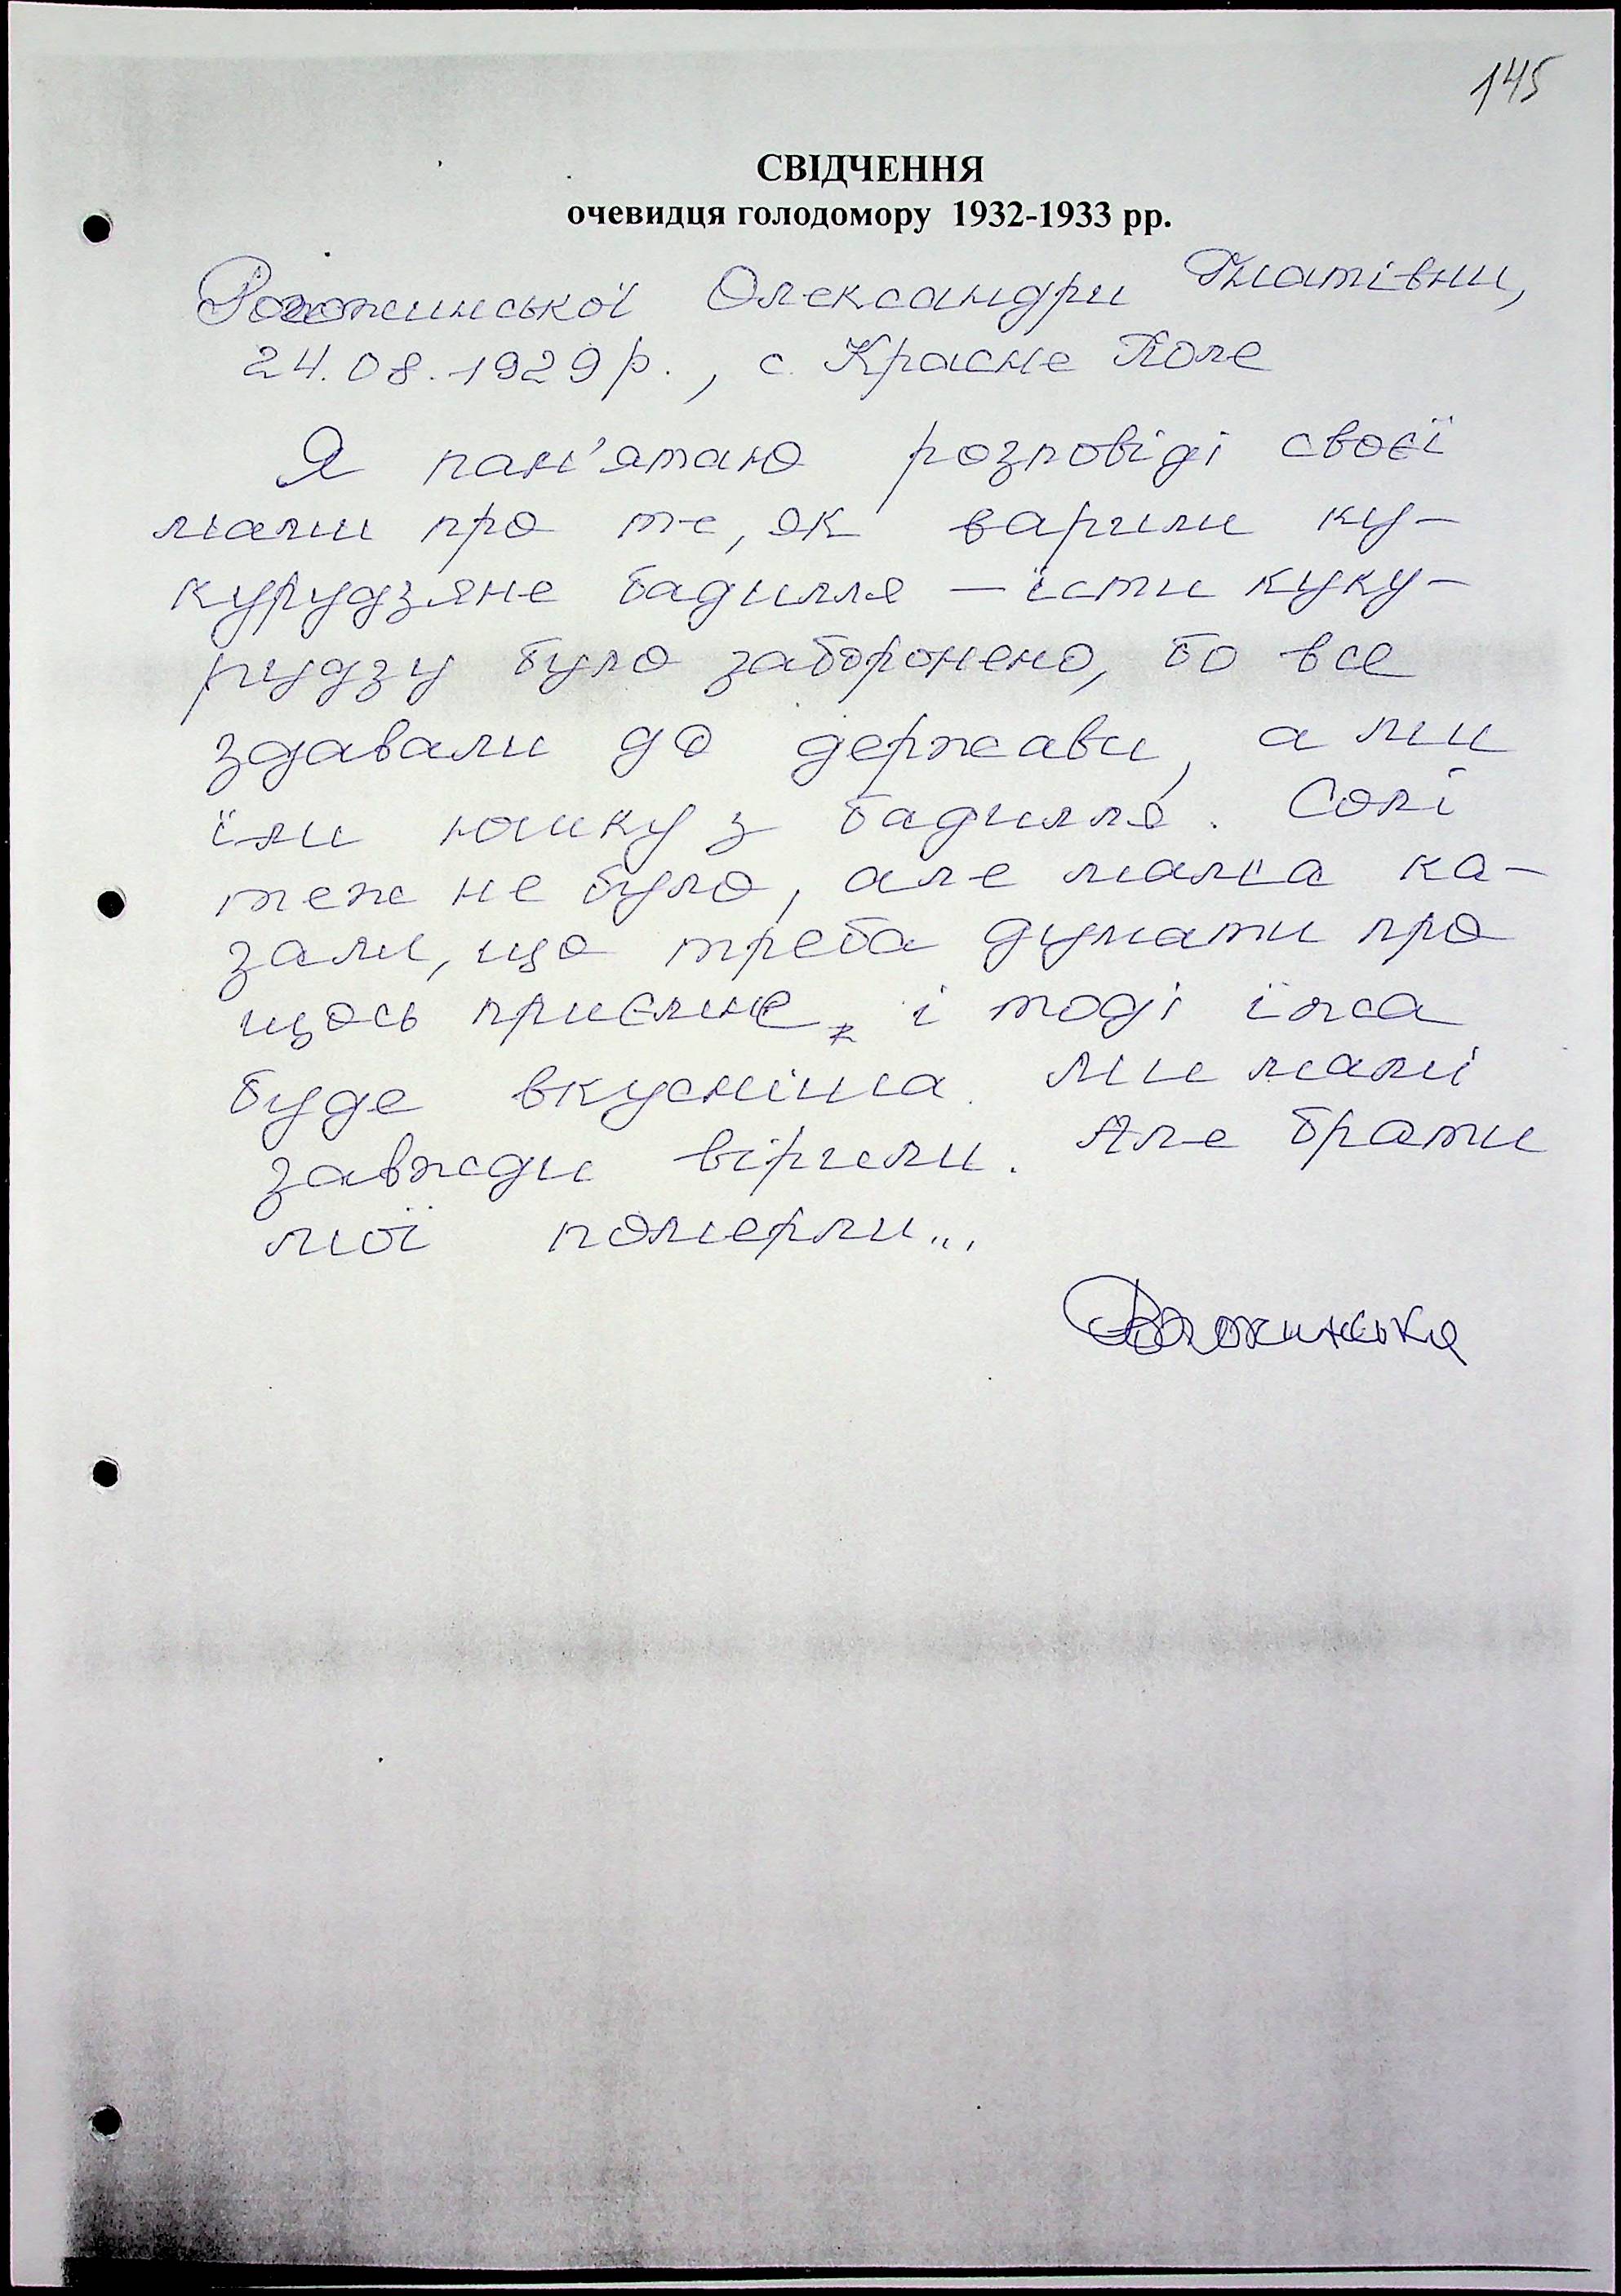 145
СВІДЧЕННЯ
очевидця голодомору 1932-1933 рр.
Рогожинської Олександри Гнатівни,
24.08.1929р., с. Красне Поле
Я пам'ятаю розповіді своєї
мами про те, як варили ку-
курудзяне бадилля — їсти куку-
рудзу було заборонено, бо все
здавали до держави, а ми
їли юшку з бадилля. Солі
теж не було, але мама ка-
зали, що треба думати про
щось приємне, і тоді їжа
буде вкусніша. Ми малі
завжди вірили. Але брати
мої померли...